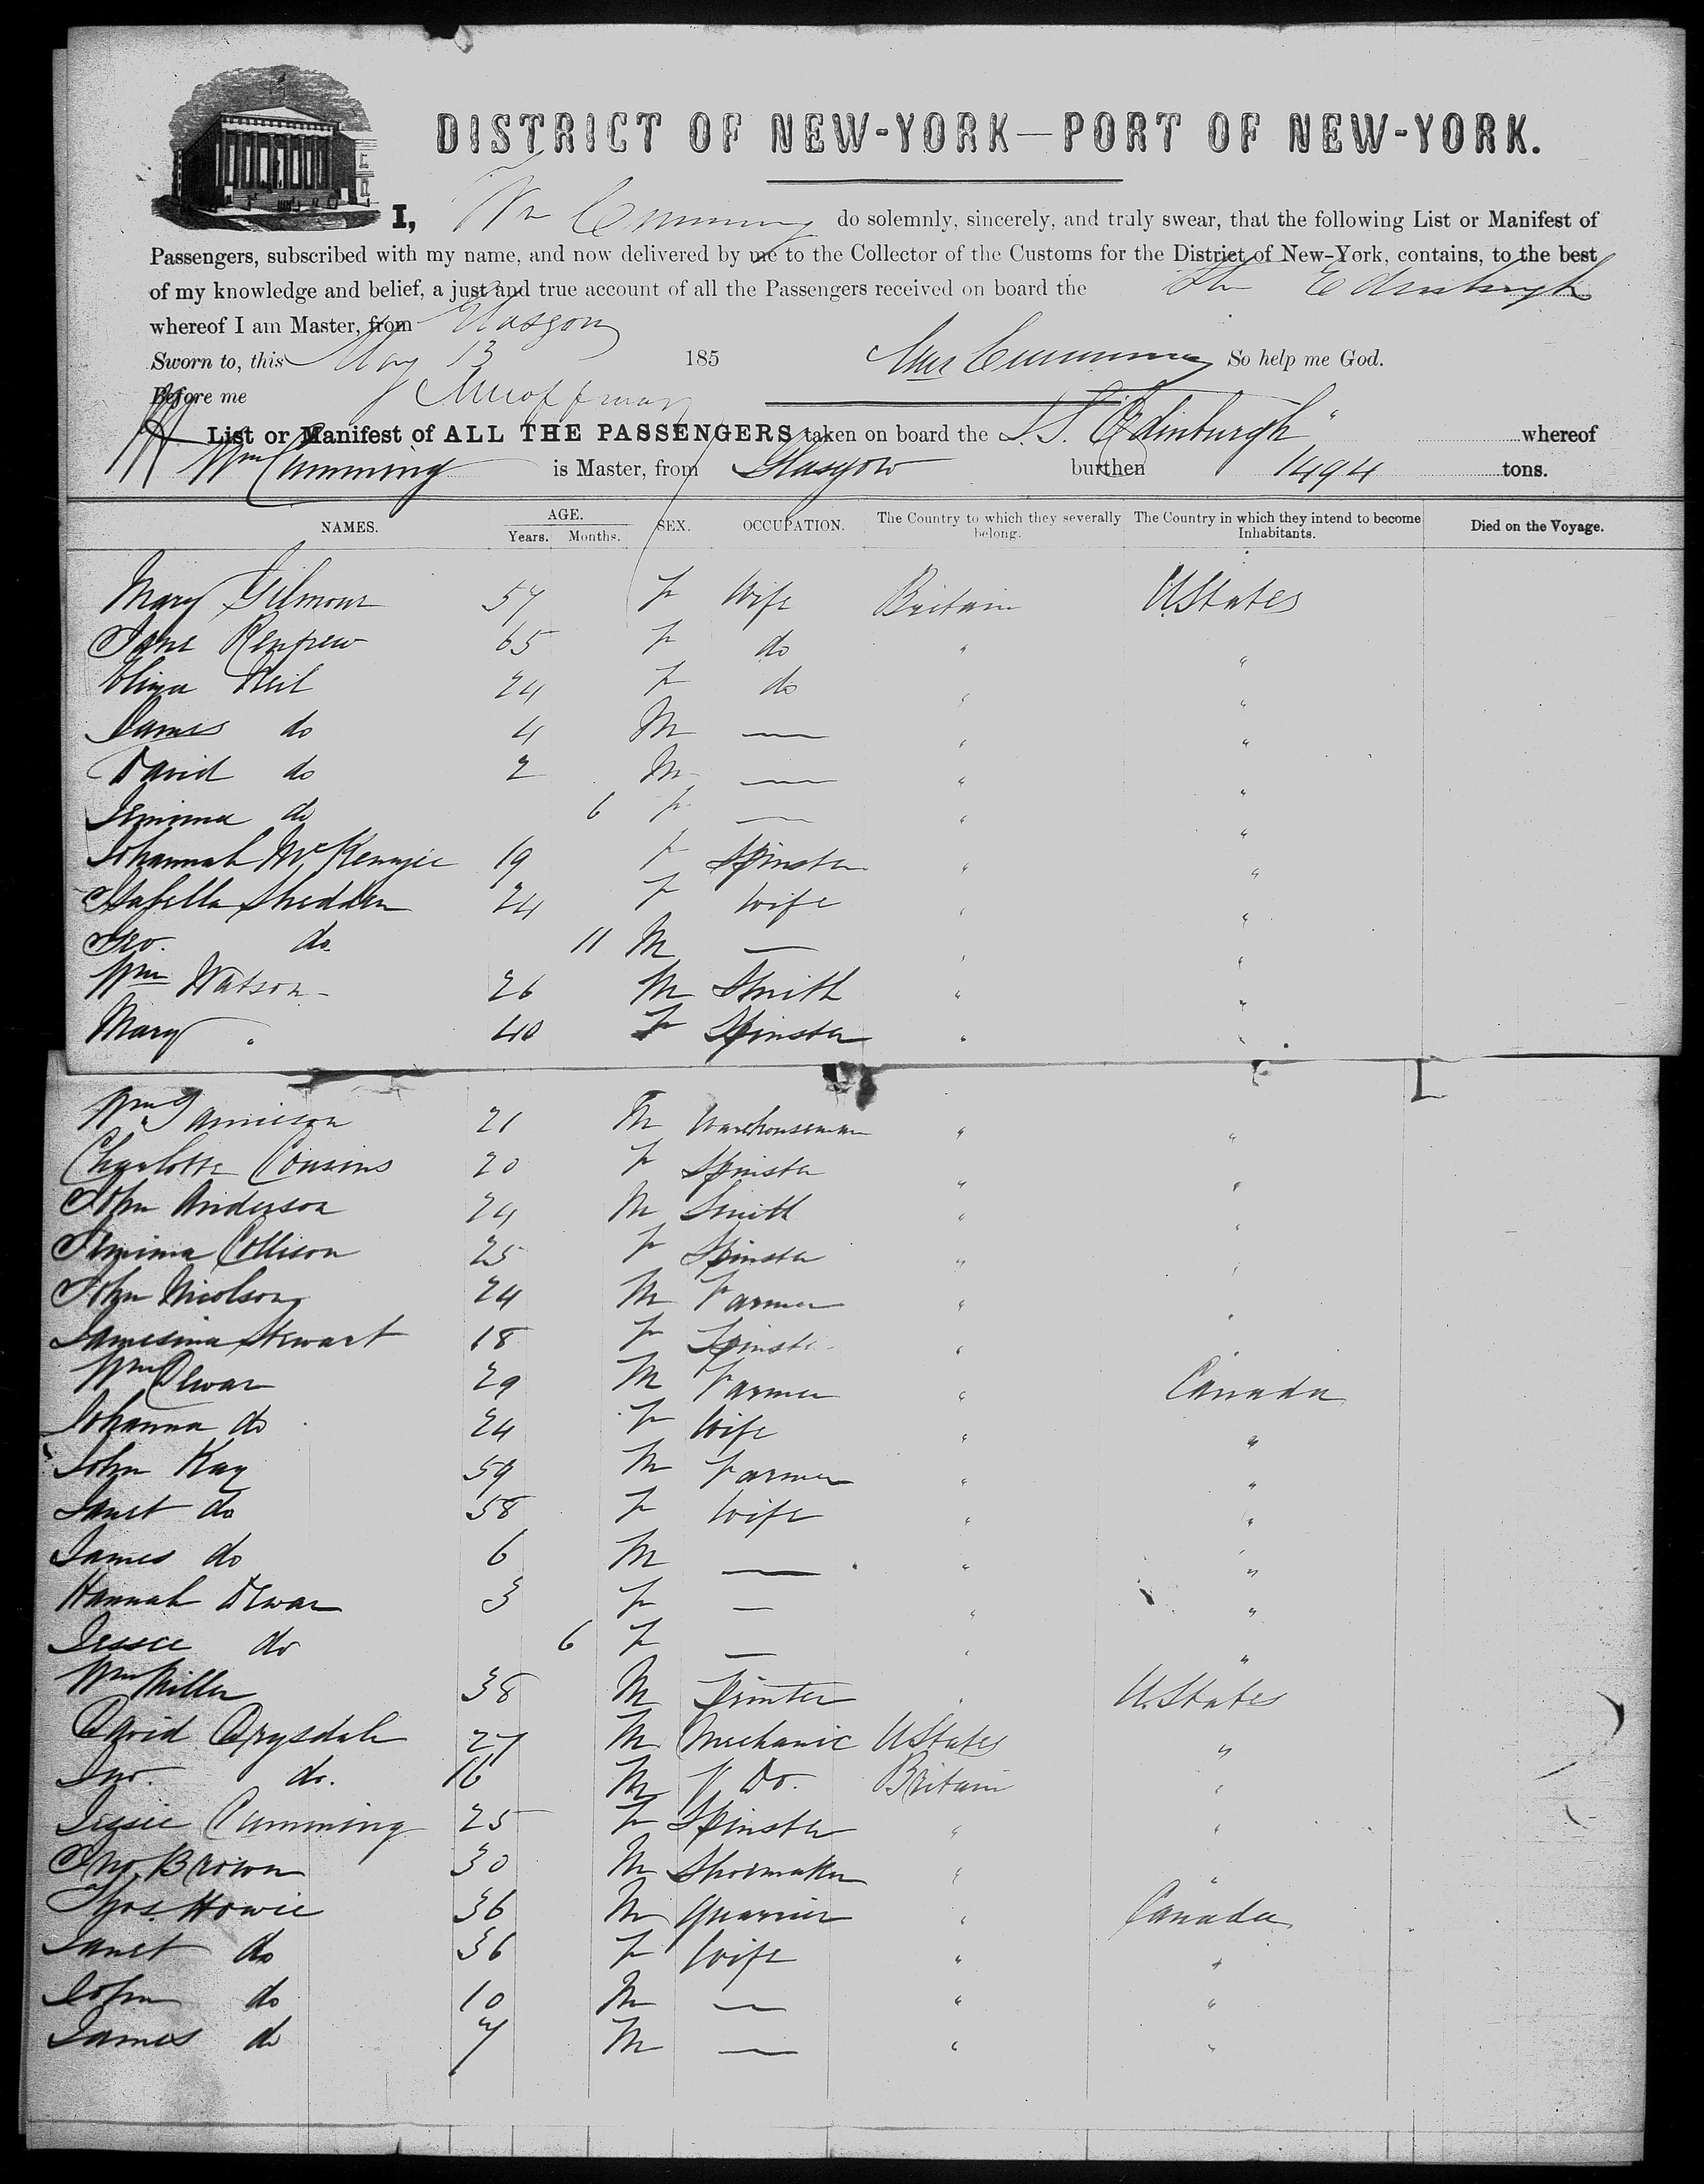 DISTRICT OF NEW-YORK—PORT OF NEW-YORK.
I, Wm Cumming do solemnly, sincerely, and truly swear, that the following List or Manifest of
Passengers, subscribed with my name, and now delivered by me to the Collector of the Customs for the District of New-York, contains, to the best
of my knowledge and belief, a just and true account of all the Passengers received on board the Str Edinburgh
whereof I am Master, from Glasgow
Sworn to, this May 13 185 Wm Cumming So help me God.
Before me
List or Manifest of ALL THE PASSENGERS taken on board the S.S. "Edinburgh" whereof
Wm Cumming is Master, from Glasgow burthen 1494 tons.
NAMES. AGE. Years. Months. SEX. OCCUPATION. The Country to which they severally belong. The Country in which they intend to become Inhabitants. Died on the Voyage.
Mary Gilmour 57 F Wife Britain U States
Jane Renfrew 65 F do " "
Eliza Neil 24 F do " "
James do 4 M — " "
David do 2 M — " "
Jemima do 6 F — " "
Johannah McKenzie 19 F Spinster " "
Isabella Shedden 24 F Wife " "
Geo. do 11 M — " "
Wm Watson 26 M Smith " "
Mary " 40 F Spinster " "
Wm Jamieson 21 M Warehouseman " "
Charlotte Cousins 20 F Spinster " "
John Anderson 24 M Smith " "
Jemima Collison 25 F Spinster " "
John Nicolson 24 M Farmer " "
Jamesina Stewart 18 F Spinster "
Wm Dewar 29 M Farmer " Canada
Johanna do 24 F Wife " "
John Kay 59 M Farmer " "
Janet do 58 F Wife " "
James do 6 M — " "
Hannah Dewar 3 F — " "
Jessie do 6 F — " "
Wm Miller 38 M Printer " U. States
David Drysdale 27 M Mechanic U States "
Jno. do. 16 M Do. Britain "
Jessie Cumming 25 F Spinster " "
Jno. Brown 30 M Shoemaker " "
Thos. Howie 36 M Quarrier " Canada
Janet do 36 F Wife " "
John do 10 M — " "
James do 7 M — " "